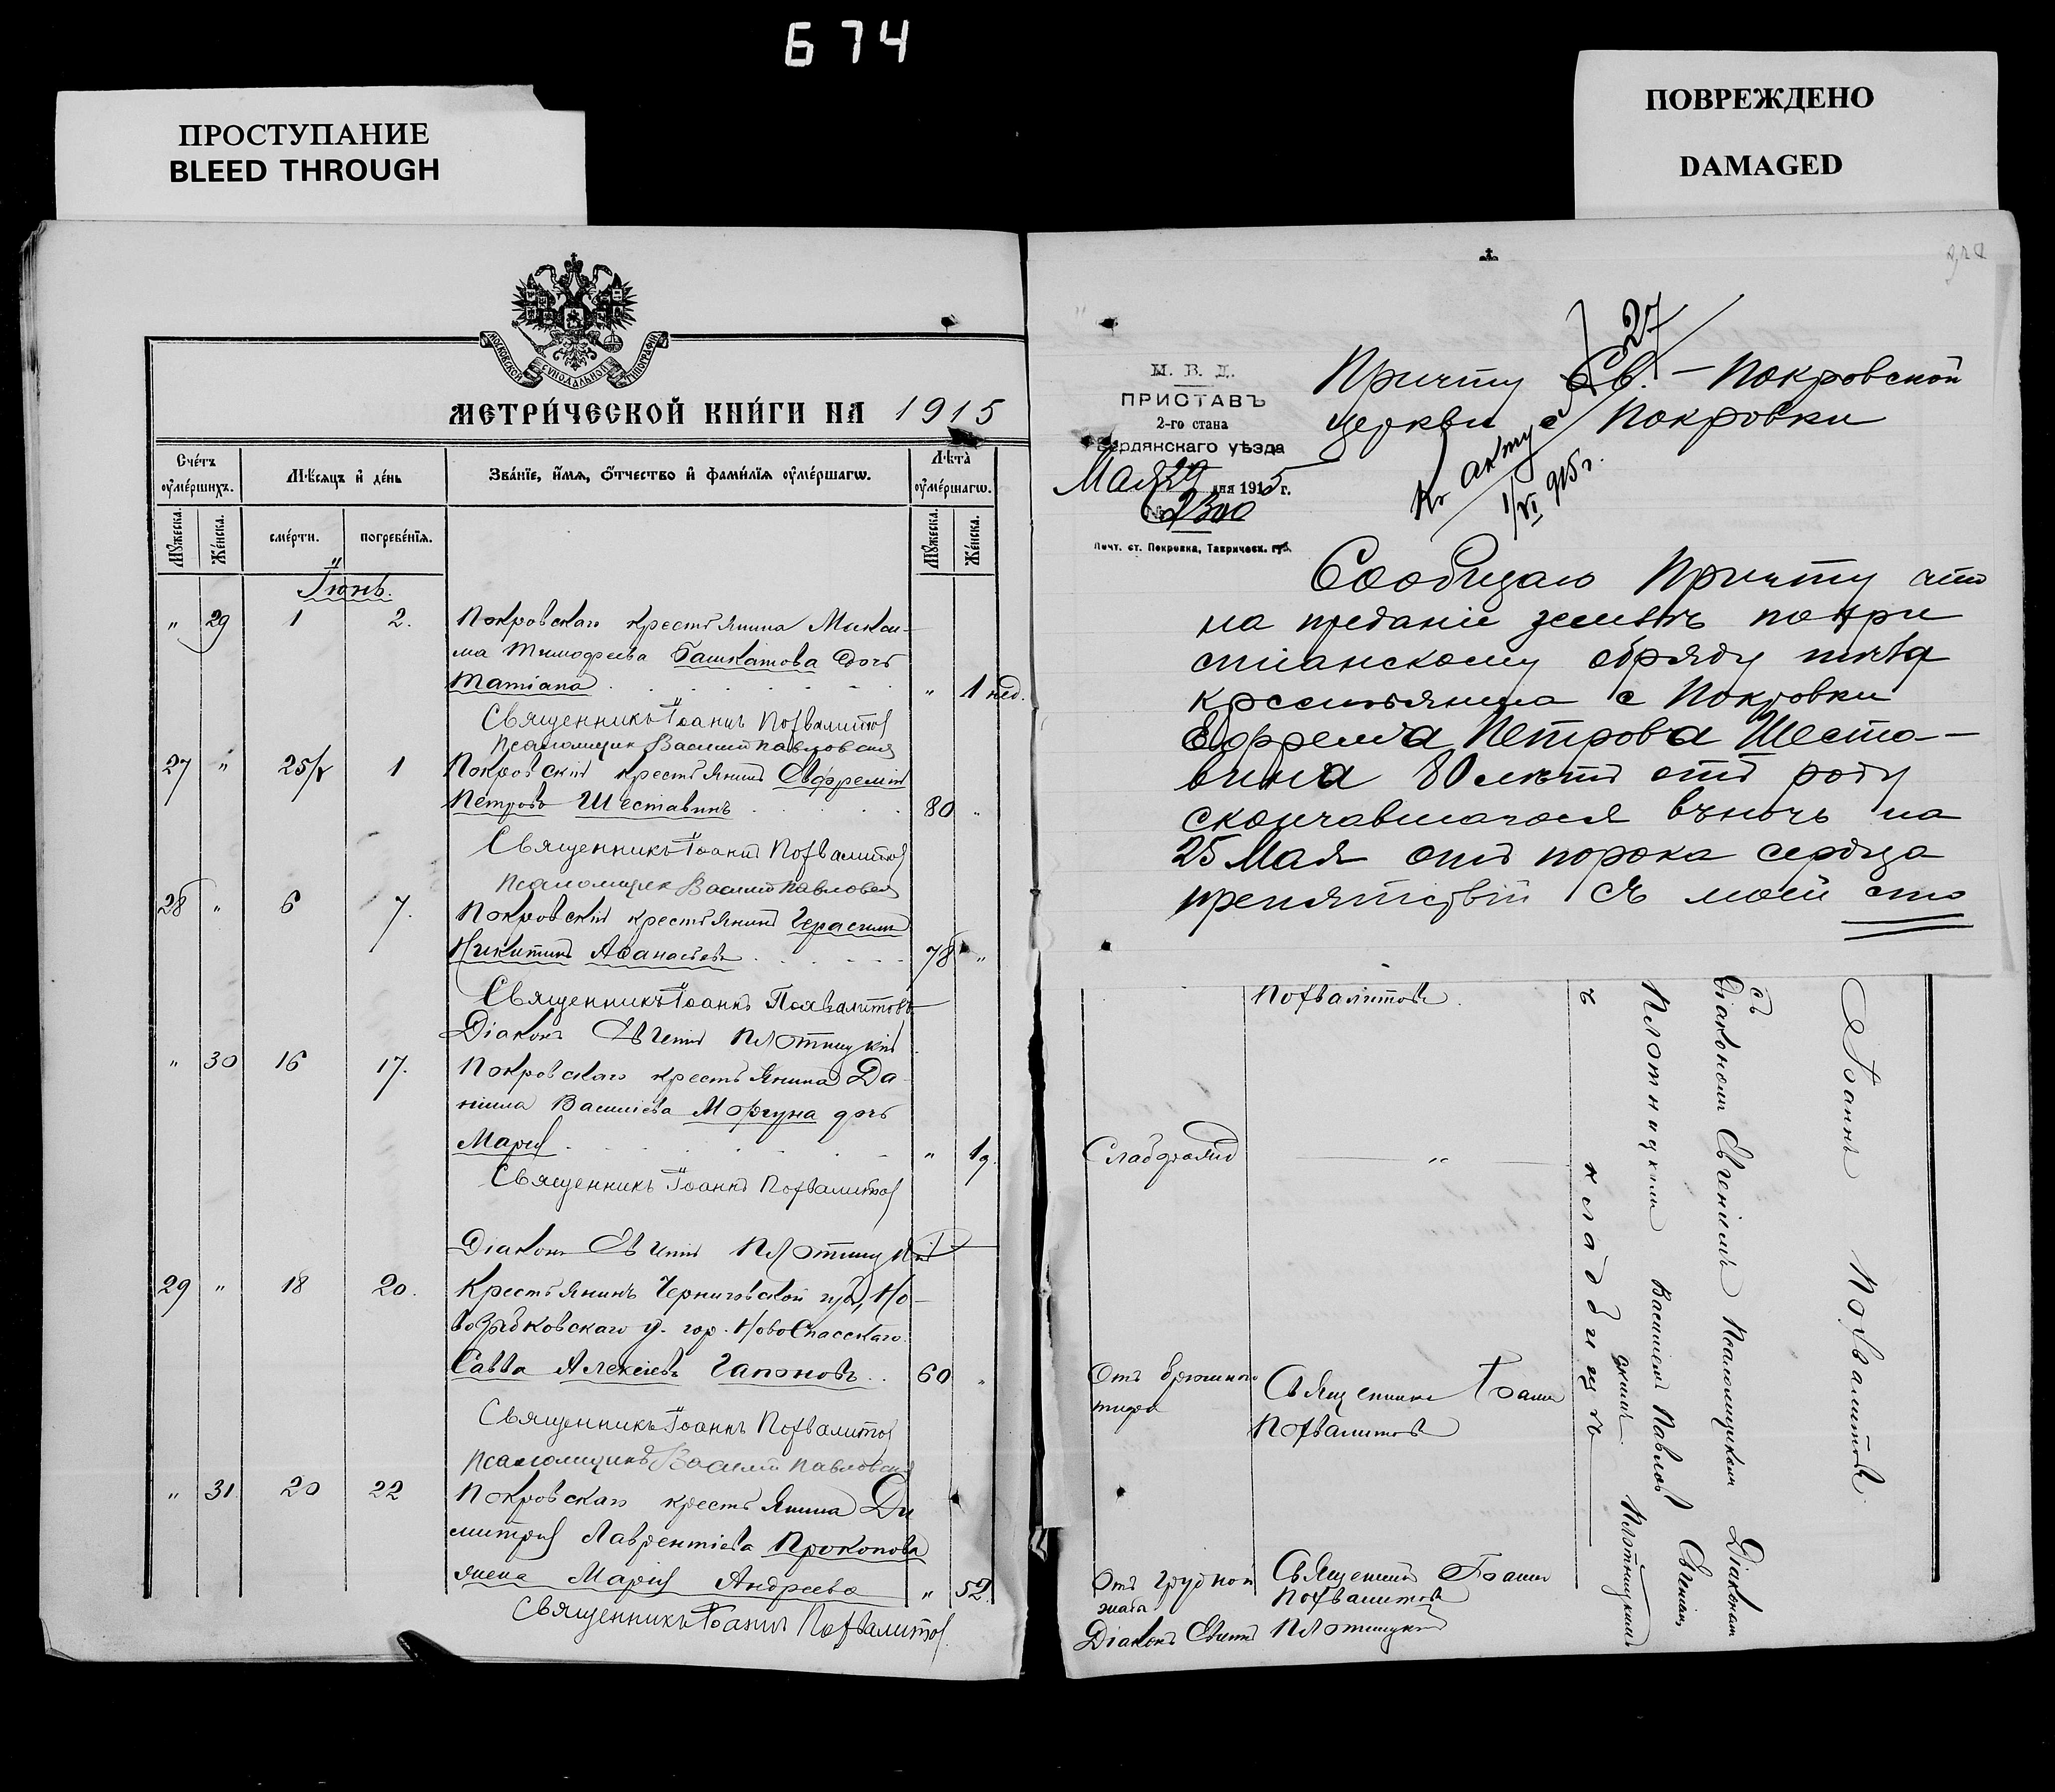 674
ПРОСТУПАНИЕ
BLEED THROUGH
ПОВРЕЖДЕНО
DAMAGED
МОСКОВСКОЙ СѴНОДАЛЬНОЙ ТИПОГРАФІИ
МЕТРИ́ЧЕСКОЙ КНИ́ГИ НА 1915
Сче́тъ ᲂумéршихъ.
Мѣ́сяцъ и҆ де́нь
Зва́нїе, и҆́мя, ѻ҆́тчество и҆ фами́лїя ᲂу҆ме́ршагѡ.
Лѣ́та ᲂу҆ме́ршагѡ.
Мꙋ́жеска.
Же́нска.
сме́рти.
погребе́нїѧ.
Мꙋ́жеска.
Же́нска.
Іюнь.
„ 29 1 2. Покровскаго крестьянина Макси-
ма Тимофеева Башкатова дочь
Татіана „ 1 нед.
Священникъ Іоаннъ Похвалитов
Псаломщик Василій Павловскій
27 „ 25/V 1 Покровскій крестьянинъ Евфремій
Петровъ Шеставинъ 80 „
Священникъ Іоаннъ Похвалитов
Псаломщик Василій Павловскій
28 „ 6 7. Покровскій крестьянинъ Герасим
Никитинъ Афанасьевъ 78 „
Священникъ Іоаннъ Похвалитовъ
Діаконъ Евгеній Плотницкій
„ 30 16 17. Покровскаго крестьянина Да
ніила Василіева Моргуна дочь
Марія „ 1 г.
Священникъ Іоаннъ Похвалитов
Діаконъ Евгеній Плотницкій
29 „ 18 20. Крестьянинъ Черниговской губ., Но-
возыбковскаго у. гор. НовоСпасскаго
Савва Алексіевъ Гапоновъ 60 „
Священникъ Іоаннъ Похвалитов
Псаломщикъ Василій Павловскій
„ 31 20 22 Покровскаго крестьянина Ди
митрія Лаврентіева Прокопова
жена Марія Андреева „ 52
Священникъ Іоаннъ Похвалитов
М. В. Д.
ПРИСТАВЪ
2-го стана
Бердянскаго уѣзда
Мая 29 дня 1915 г.
№ 2300
Почт. ст. Покровка, Таврическ. губ.
Причту Св. - Покровской
церкви с Покровки
Къ акту № 27
1/VI 915 г.
Сообщаю Причту что
на преданіе землѣ по хри
стіанскому обряду тѣла
крестьянина с Покровки
Ефрема Петрова Шеста-
вина 80 лѣтъ отъ роду
скончавшагося въ ночь на
25 Мая отъ порока сердца
препятствій съ моей сто
Похвалитовъ.
Отъ брюшного
тифа
Священникъ Іоаннъ
Похвалитовъ
Отъ грудной
жаба
Священникъ Іоаннъ
Похвалитовъ
Діаконъ Евгеній Плотницкій
кладбищѣ
Плотницкимъ Василіемъ Павлов Евгеніемъ
Плотницкимъ
съ Діакономъ Евгеніемъ Псаломщикомъ Діаконом
Іоаннъ Похвалитовъ.